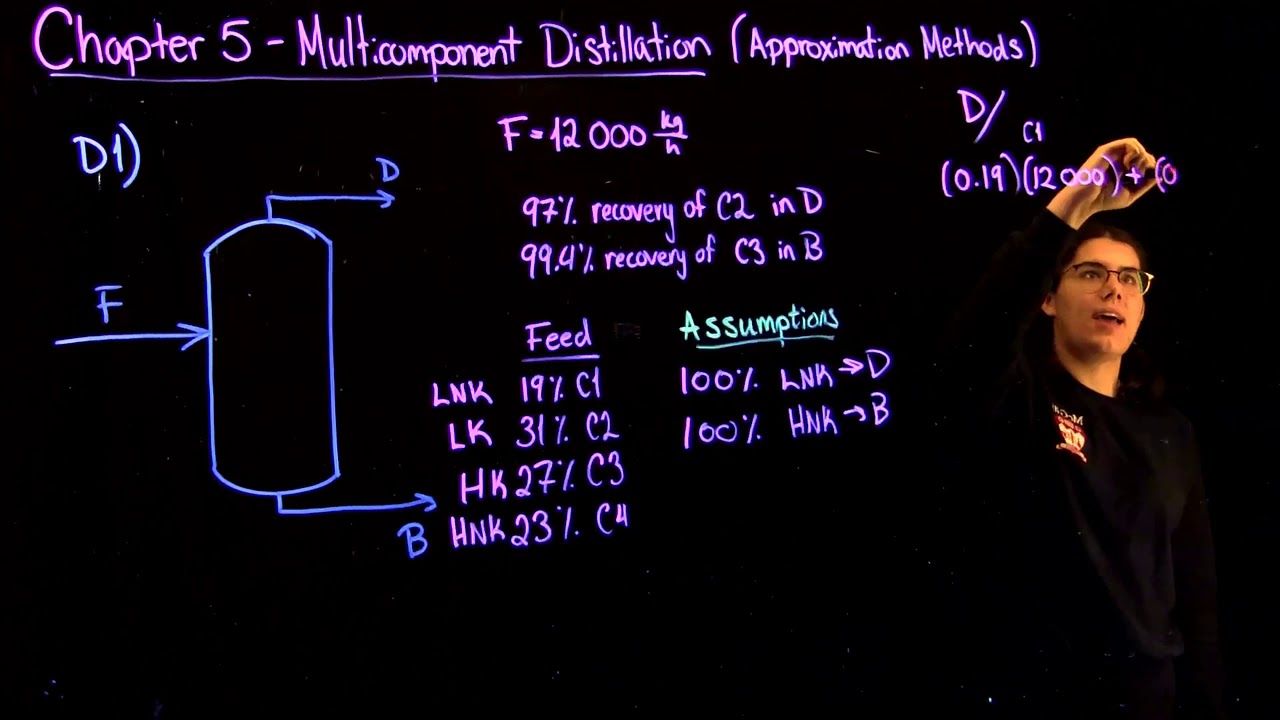 Chapter 5 - Multicomponent Distillation (Approximation Methods)
D1)
F
D
B
F = 12 000 kg/h
97% recovery of C2 in D
99.4% recovery of C3 in B
Feed
LNK 19% C1
LK 31% C2
HK 27% C3
HNK 23% C4
Assumptions
100% LNK → D
100% HNK → B
D/
C1
(0.19)(12 000) + (0